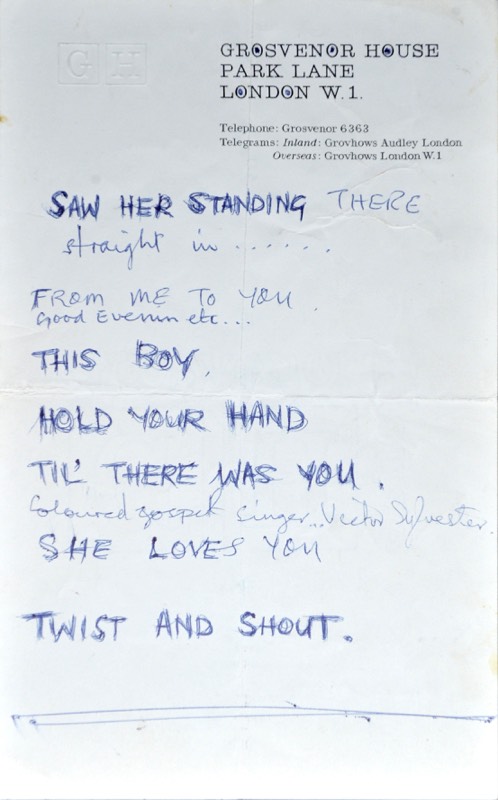 G H
GROSVENOR HOUSE
PARK LANE
LONDON W.1.
Telephone: Grosvenor 6363
Telegrams: Inland: Grovhows Audley London
Overseas: Grovhows London W.1
SAW HER STANDING THERE
straight in .......
FROM ME TO YOU.
Good Evenin etc...
THIS BOY.
HOLD YOUR HAND
TIL' THERE WAS YOU.
Coloured gospel singer... Victor Sylvester.
SHE LOVES YOU
TWIST AND SHOUT.